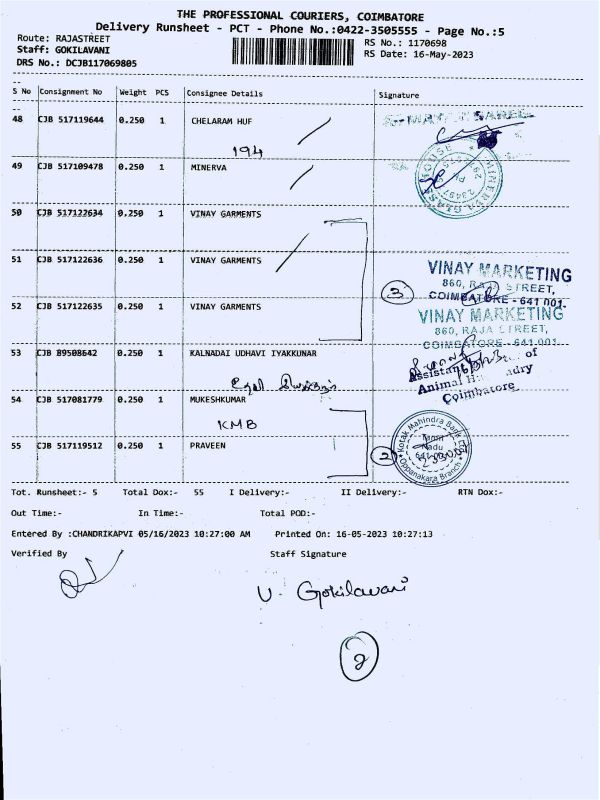 THE PROFESSIONAL COURIERS, COIMBATORE
Delivery Runsheet - PCT - Phone No.:0422-3505555 - Page No.:5
Route: RAJASTREET
RS No.: 1170698
Staff: GOKILAVANI
RS Date: 16-May-2023
DRS No.: DCJB117069805
S No Consignment No Weight PCS Consignee Details Signature
48 CJB 517119644 0.250 1 CHELARAM HUF
194
49 CJB 517109478 0.250 1 MINERVA
MINERVA GLASS HOUSE
50 CJB 517122634 0.250 1 VINAY GARMENTS
51 CJB 517122636 0.250 1 VINAY GARMENTS
VINAY MARKETING
860, RAJA STREET,
COIMBATORE - 641 001.
3
52 CJB 517122635 0.250 1 VINAY GARMENTS
VINAY MARKETING
860, RAJA STREET,
COIMBATORE - 641 001.
53 CJB 89508642 0.250 1 KALNADAI UDHAVI IYAKKUNAR
Assistant of
Animal
Coimbatore
54 CJB 517081779 0.250 1 MUKESHKUMAR
KMB
Kotak Mahindra Bank
Tamil
Nadu
Oppanakara Branch
2
55 CJB 517119512 0.250 1 PRAVEEN
Tot. Runsheet:- 5 Total Dox:- 55 I Delivery:- II Delivery:- RTN Dox:-
Out Time:- In Time:- Total POD:-
Entered By :CHANDRIKAPVI 05/16/2023 10:27:00 AM Printed On: 16-05-2023 10:27:13
Verified By Staff Signature
V. Gokilavani
2